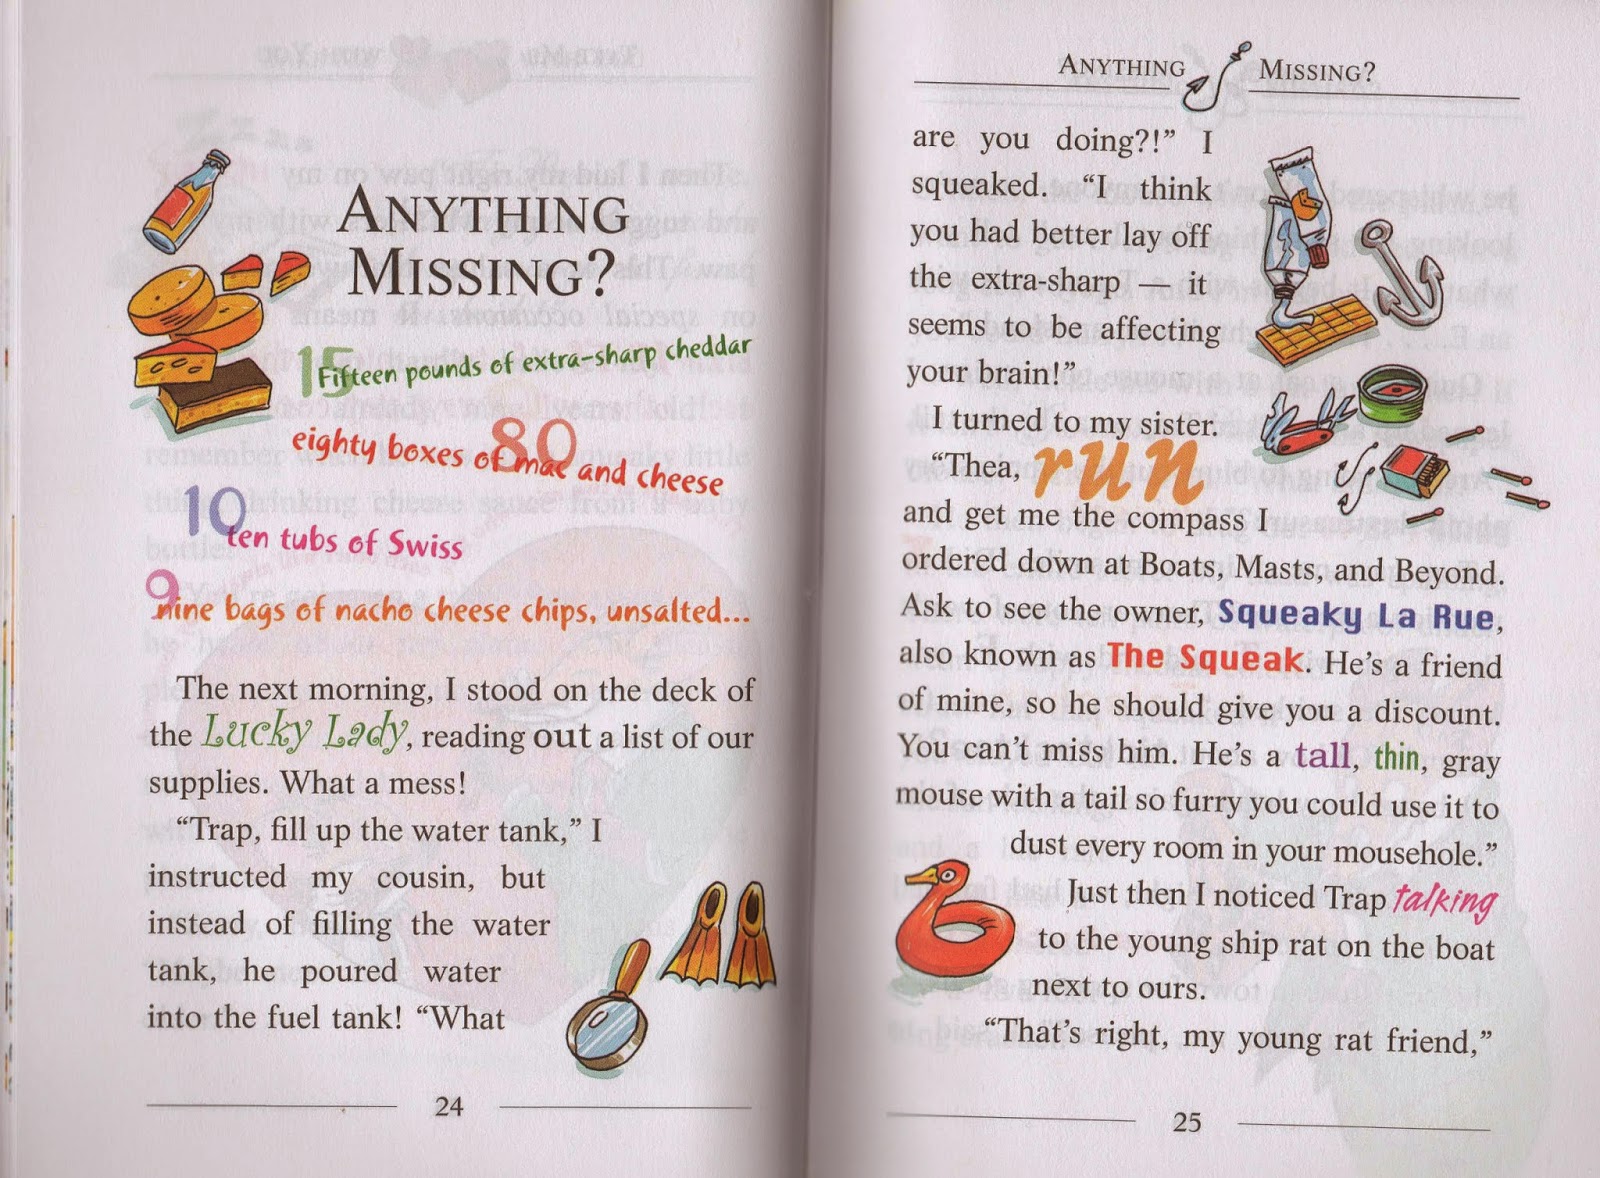 ANYTHING
MISSING?
15
Fifteen pounds of extra-sharp cheddar
80
eighty boxes of mac and cheese
10
ten tubs of Swiss
9
nine bags of nacho cheese chips, unsalted...
The next morning, I stood on the deck of
the Lucky Lady, reading out a list of our
supplies. What a mess!
“Trap, fill up the water tank,” I
instructed my cousin, but
instead of filling the water
tank, he poured water
into the fuel tank! “What
24
ANYTHING MISSING?
are you doing?!” I
squeaked. “I think
you had better lay off
the extra-sharp — it
seems to be affecting
your brain!”
I turned to my sister.
“Thea, run
and get me the compass I
ordered down at Boats, Masts, and Beyond.
Ask to see the owner, Squeaky La Rue,
also known as The Squeak. He’s a friend
of mine, so he should give you a discount.
You can’t miss him. He’s a tall, thin, gray
mouse with a tail so furry you could use it to
dust every room in your mousehole.”
Just then I noticed Trap talking
to the young ship rat on the boat
next to ours.
“That’s right, my young rat friend,”
25